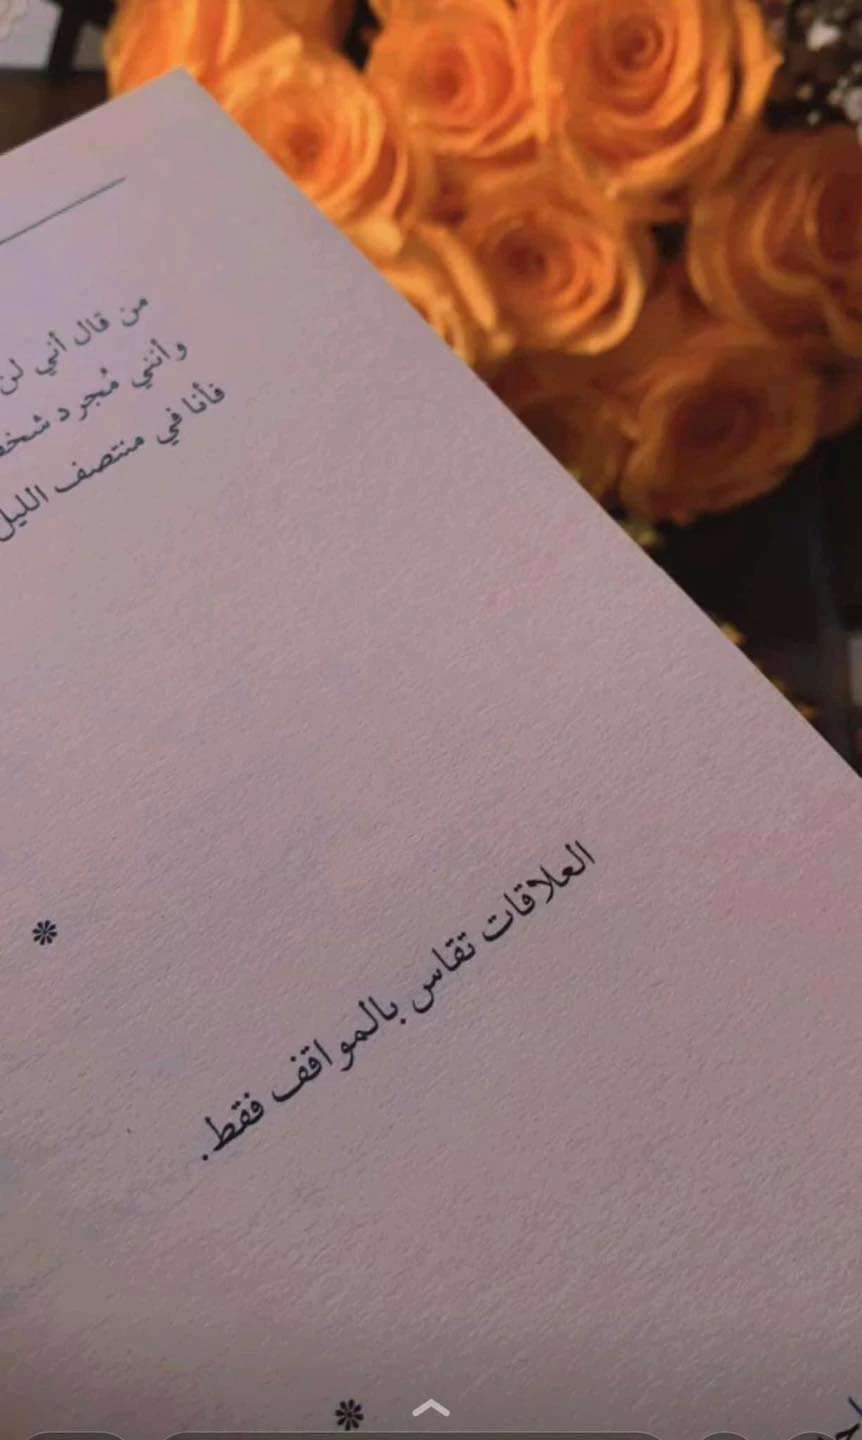 من قال أني لن
وأنني مُجرد
فأنا في منتصف الليل
*
العلاقات تقاس بالمواقف فقط.
*